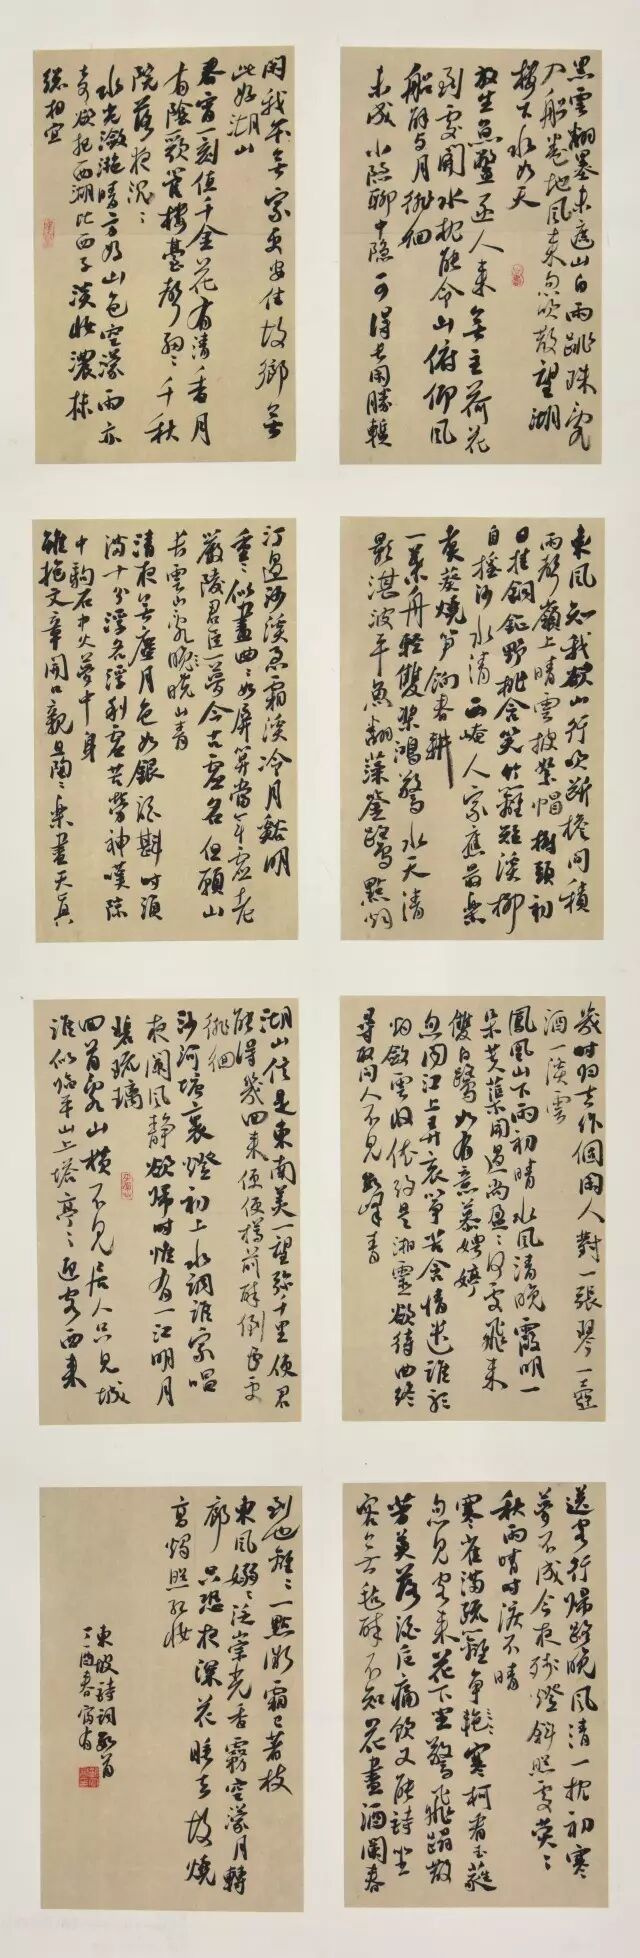 黑雲翻墨未遮山白雨跳珠亂
入船卷地風來忽吹散望湖
樓下水如天
放生魚鱉逐人來無主荷花
到處開水枕能令山俯仰風
船解與月徘徊
未成小隱聊中隱可得長閑勝暫
閑我本無家更安往故鄉無
此好湖山
春宵一刻值千金花有清香月
有陰歌管樓臺聲細〻千秋
院落夜沉〻
水光瀲灩晴方好山色空濛雨亦
奇欲把西湖比西子淡妝濃抹
總相宜
東風知我欲山行吹斷檐間積
雨聲嶺上晴雲披絮帽樹頭初
日挂銅鉦野桃含笑竹籬短溪柳
自搖沙水清西崦人家應最樂
煮葵燒笋餉春耕
一葉舟輕雙槳鴻驚水天清
影湛波平魚翻藻鑒鷺點煙
汀過沙溪急霜溪冷月谿明
重〻似畫曲〻如屏算當年虛老
嚴陵君臣夢今古虛名但願山
長雲山亂曉山青
清夜無塵月色如銀酒斟時須
滿十分浮名浮利虛苦勞神嘆隙
中駒石中火夢中身
雖抱文章開口親且陶〻樂盡天真
幾時歸去作個閑人對一張琴一壺
酒一溪雲
鳳凰山下雨初晴水風清晚霞明一
朵芙蕖開過尚盈〻何處飛來
雙白鷺如有意慕娉婷
忽聞江上弄哀箏苦含情遣誰聽
煙斂雲收依約是湘靈欲待曲終
尋取問人不見數峰青
湖山信是東南美一望彌千里使君
能得幾回來便使樽前醉倒更
徘徊
沙河塘裏燈初上水調誰家唱
夜闌風靜欲歸時惟有一江明月
碧琉璃
回首亂山橫不見居人只見城
誰似臨平山上塔亭〻迎客西來
送客行歸路晚風清一枕初寒
夢不成今夜殘燈斜照處熒〻
秋雨晴時淚不晴
寒雀滿疏籬爭抱寒柯看玉蕤
忽見客來花下坐驚飛蹋散
芳英落酒卮痛飲又能詩坐
客無氈醉不知花盡酒闌春
到也離〻一點微霜已著枝
東風嫋〻泛崇光香霧空濛月轉
廊只恐夜深花睡去故燒
高燭照紅妝
東坡詩詞數首
丁酉春